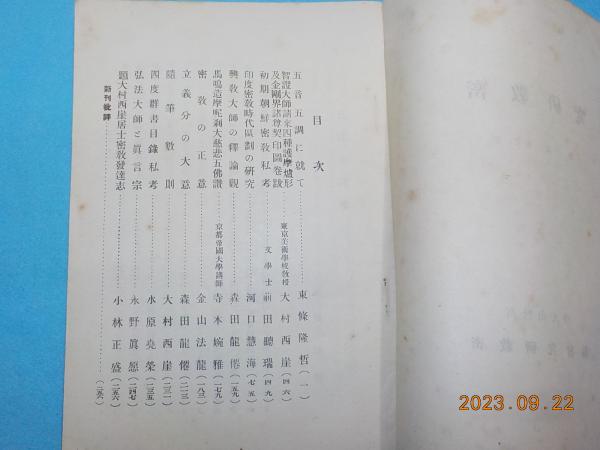 目次
五音五調に就て………東條隆哲(一)
智證大師請來四種護摩爐形
及金剛界諸尊契印圖卷跋 東京美術學校敎授 大村西崖(四六)
初期朝鮮密敎私考 文學士 前田聽瑞(四九)
印度密敎時代區劃の硏究………河口慧海(七五)
興敎大師の釋論觀………森田龍僊(一五九)
馬鳴造摩呢刹大慈悲五佛讃 京都帝國大學講師 寺本婉雅(一七九)
密敎の正意………金山法龍(一八三)
立義分の大意………森田龍僊(二一三)
隨筆數則………大村西崖(二三一)
四度群書目錄私考………水原堯榮(二三五)
弘法大師と眞言宗………永野眞原(二四七)
題大村西崖居士密敎發達志………小林正盛(二五六)
新刊批評………(二五八)
2023.09.22